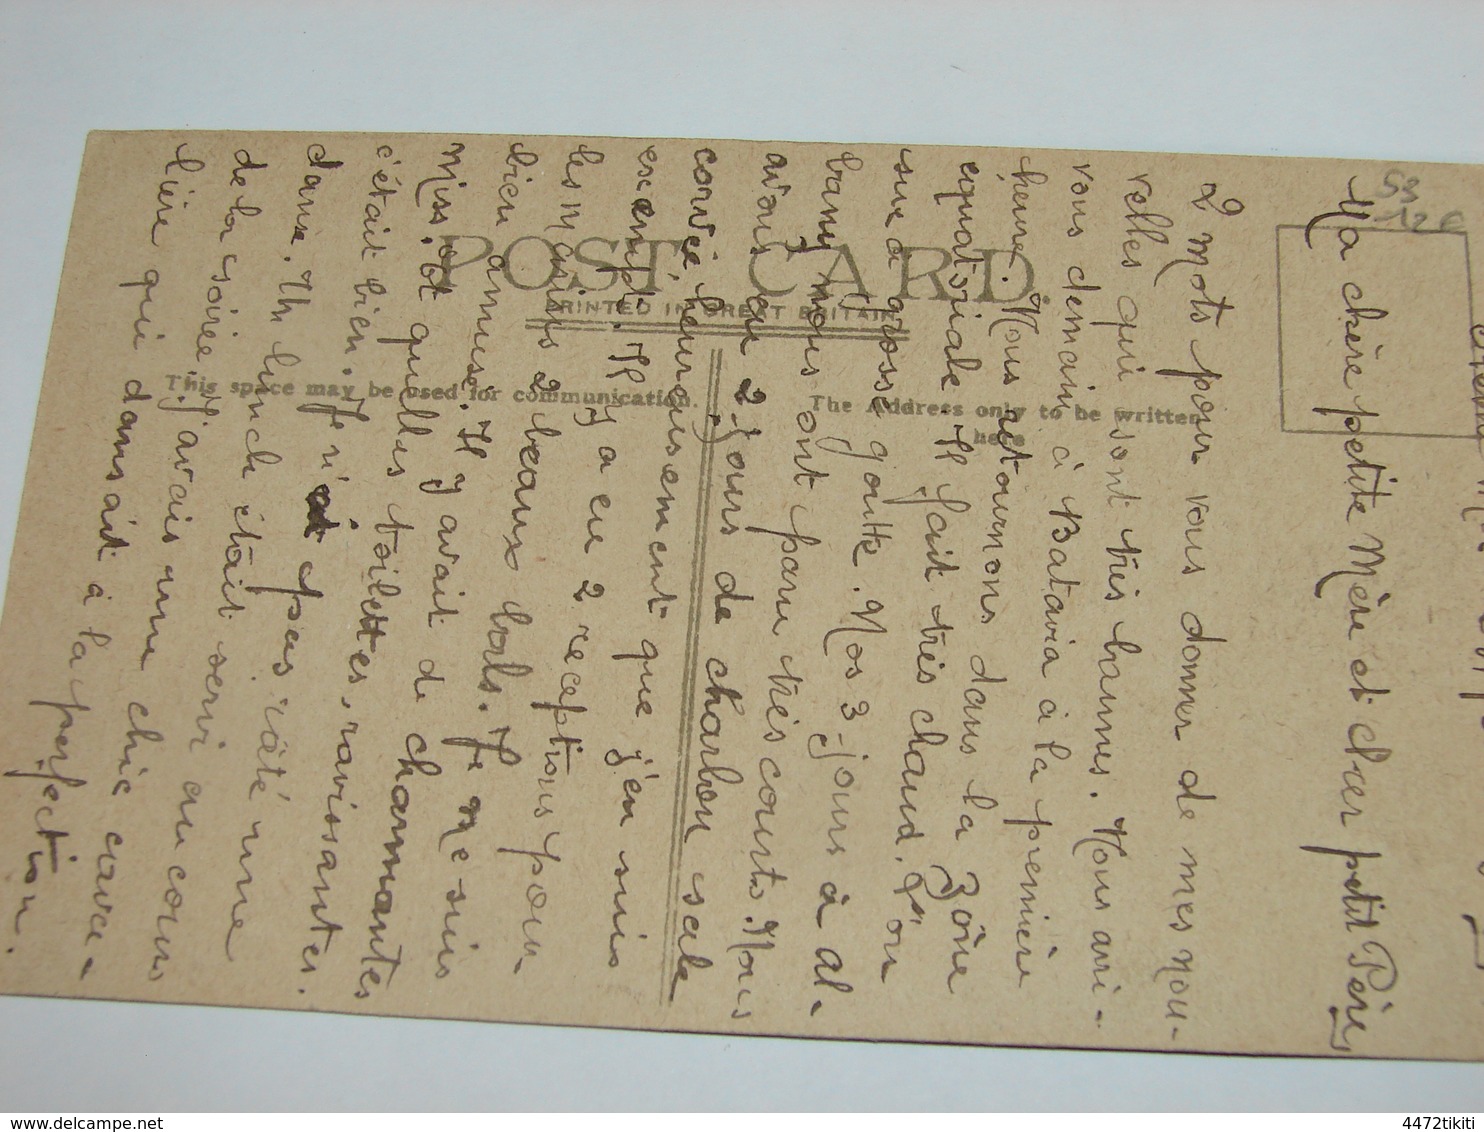 Ma chère petite Mère et cher petit Père
2 mots pour vous donner de mes nou-
velles qui sont très bonnes. Nous arri-
vons demain à Batavia à la première
heure. Nous retournons dans la Zône
equatoriale. Il fait très chaud. L'on
sue à grosse goutte. Nos 3 jours à Al-
bany nous ont paru très courts. Nous
avons eu 2 jours de charbon sale
corvée, heureusement que j'en suis
exempt. Il y a eu 2 réceptions pour
les marins 2 beaux bals. Je
bien amusé. Il y avait de charmantes
Miss. et quelles toilettes, ravissantes
c'était bien. Je n'ai pas raté une
danse. Un lunch était servi au cours
de la soirée. J'avais une chic cava-
lière qui dansait à la perfection.
POST CARD
PRINTED IN GREAT BRITAIN
This space may be used for communication.
The Address only to be written
here
53
126
4472tikiti
delcampe.net